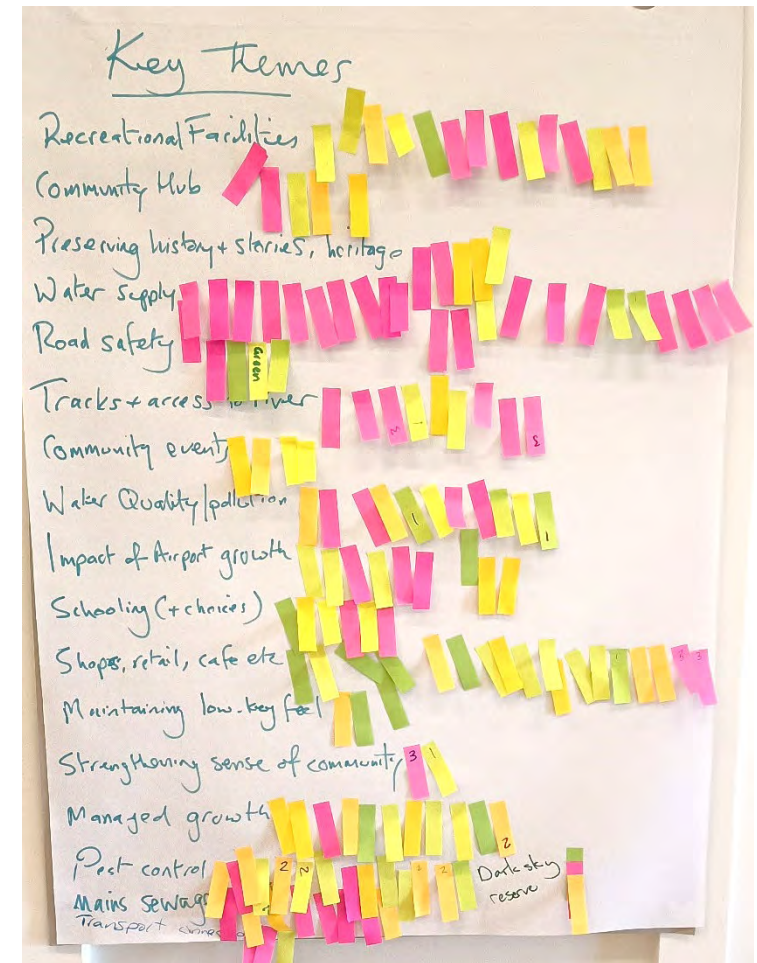 Key Themes
Recreational Facilities
Community Hub
Preserving history + stories, heritage
Water supply
Road safety
Green
Tracks + access to river
2
1
3
Community events
Water Quality/pollution
1
1
Impact of Airport growth
Schooling (+ choices)
Shops, retail, cafe etc
1
3
3
Maintaining low-key feel
Strengthening sense of community
3
1
Managed growth
2
Pest control
2
2
1
2
Dark sky
reserve
Mains sewage
Transport